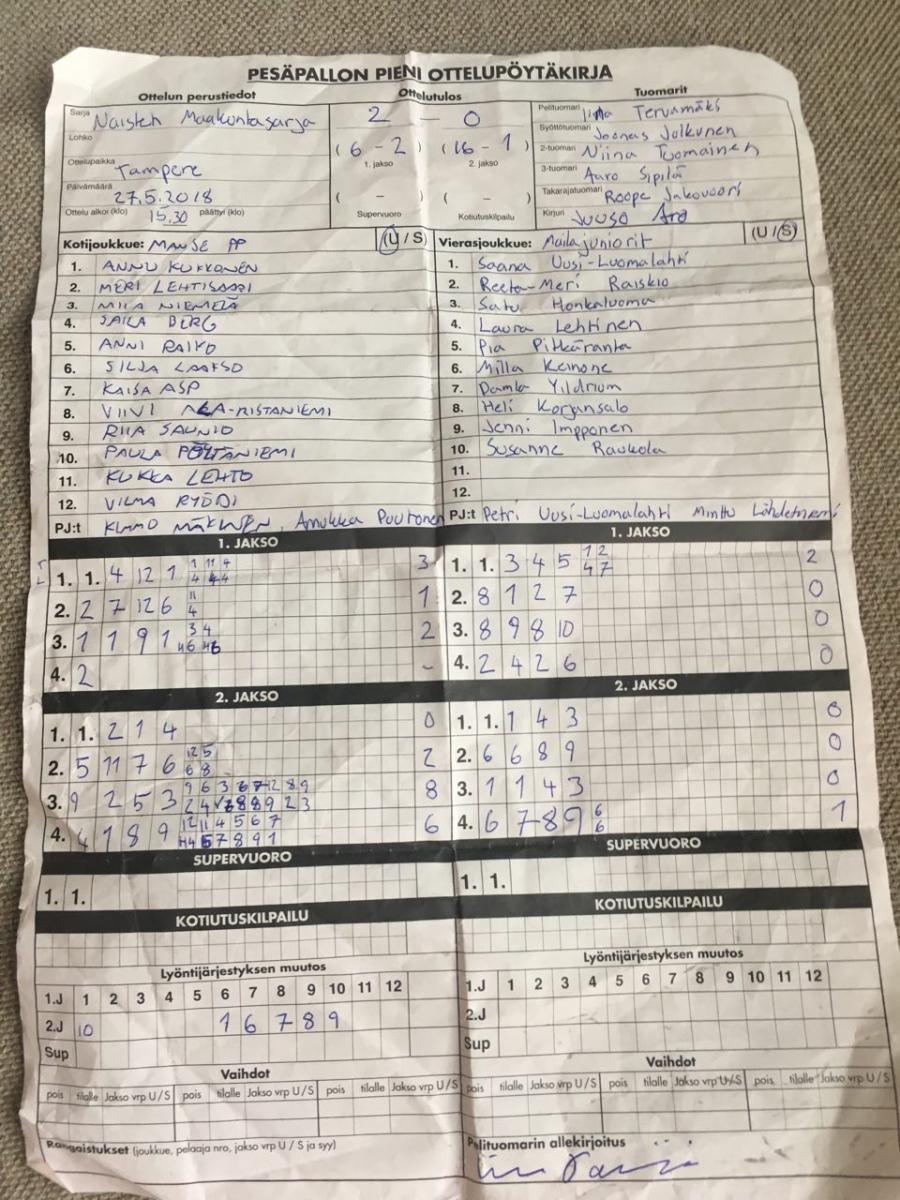 PESÄPALLON PIENI OTTELUPÖYTÄKIRJA
Ottelun perustiedot Ottelutulos Tuomarit
Sarja Naisten Maakuntasarja 2 - 0 Pelituomari Tervamäki
Lohko Syöttötuomari Joonas Julkunen
(6 - 2) (16 - 1) 2-tuomari Niina Tuomainen
1. jakso 2. jakso
Ottelupaikka Tampere 3-tuomari Aaro Sipilä
Päivämäärä 27.5.2018 ( - ) ( - ) Takarajatuomari Roope Jakovuori
Ottelu alkoi (klo) 15.30 päättyi (klo) Supervuoro Kotiutuskilpailu Kirjuri Juuso Aro
Kotijoukkue: MANSE PP (U/S) Vierasjoukkue: Mailajuniorit (U/S)
1. ANNU KUKKONEN 1. Saana Uusi-Luomalahti
2. MERI LEHTISAARI 2. Reeta-Meri Raiskio
3. MIIA NIEMELÄ 3. Satu Honkaluoma
4. SAILA BERG 4. Laura Lehtinen
5. ANNI RAIKO 5. Pia Pitkäranta
6. SILJA LAAKSO 6. Milla Keinone
7. KAISA ASP 7. Damla Yildrium
8. VIIVI ALA-RISTANIEMI 8. Heli Korjansalo
9. RIIA SAUNIO 9. Jenni Impponen
10. PAULA PÖYTÄNIEMI 10. Susanne Raukola
11. KUKKA LEHTO 11.
12. VILMA RYÖDI 12.
PJ:t KIMMO MÄKINEN, Annukka Puutonen PJ:t Petri Uusi-Luomalahti Minttu Lähdetniemi
1. JAKSO 1. JAKSO
1. 1. 4 12 1 1 11 4 3 1. 1. 3 4 5 1 2 2
4 4 4 4 7
2. 2 7 12 6 11 1 2. 8 1 2 7 0
4
3. 1 1 9 1 3 4 2 3. 8 9 8 10 0
4. 2 - 4. 2 4 2 6 0
2. JAKSO 2. JAKSO
1. 1. 2 1 4 0 1. 1. 1 4 3 0
2. 5 11 7 6 12 5 2 2. 6 6 8 9 0
6 8
3. 9 2 5 3 9 6 3 6 7 12 8 9 8 3. 1 1 4 3 0
4. 4 1 8 9 12 11 4 5 6 7 6 4. 6 7 8 9 6 1
7 8 9 1 6
SUPERVUORO SUPERVUORO
1. 1. 1. 1.
KOTIUTUSKILPAILU KOTIUTUSKILPAILU
Lyöntijärjestyksen muutos Lyöntijärjestyksen muutos
1.J 1 2 3 4 5 6 7 8 9 10 11 12 1.J 1 2 3 4 5 6 7 8 9 10 11 12
2.J 10 1 6 7 8 9 2.J
Sup Sup
Vaihdot Vaihdot
pois tilalle Jakso vrp U/S pois tilalle Jakso vrp U/S pois tilalle Jakso vrp U/S pois tilalle Jakso vrp U/S pois tilalle Jakso vrp U/S pois tilalle Jakso vrp U/S
Rangaistukset (joukkue, pelaaja nro, jakso vrp U / S ja syy) Pelituomarin allekirjoitus